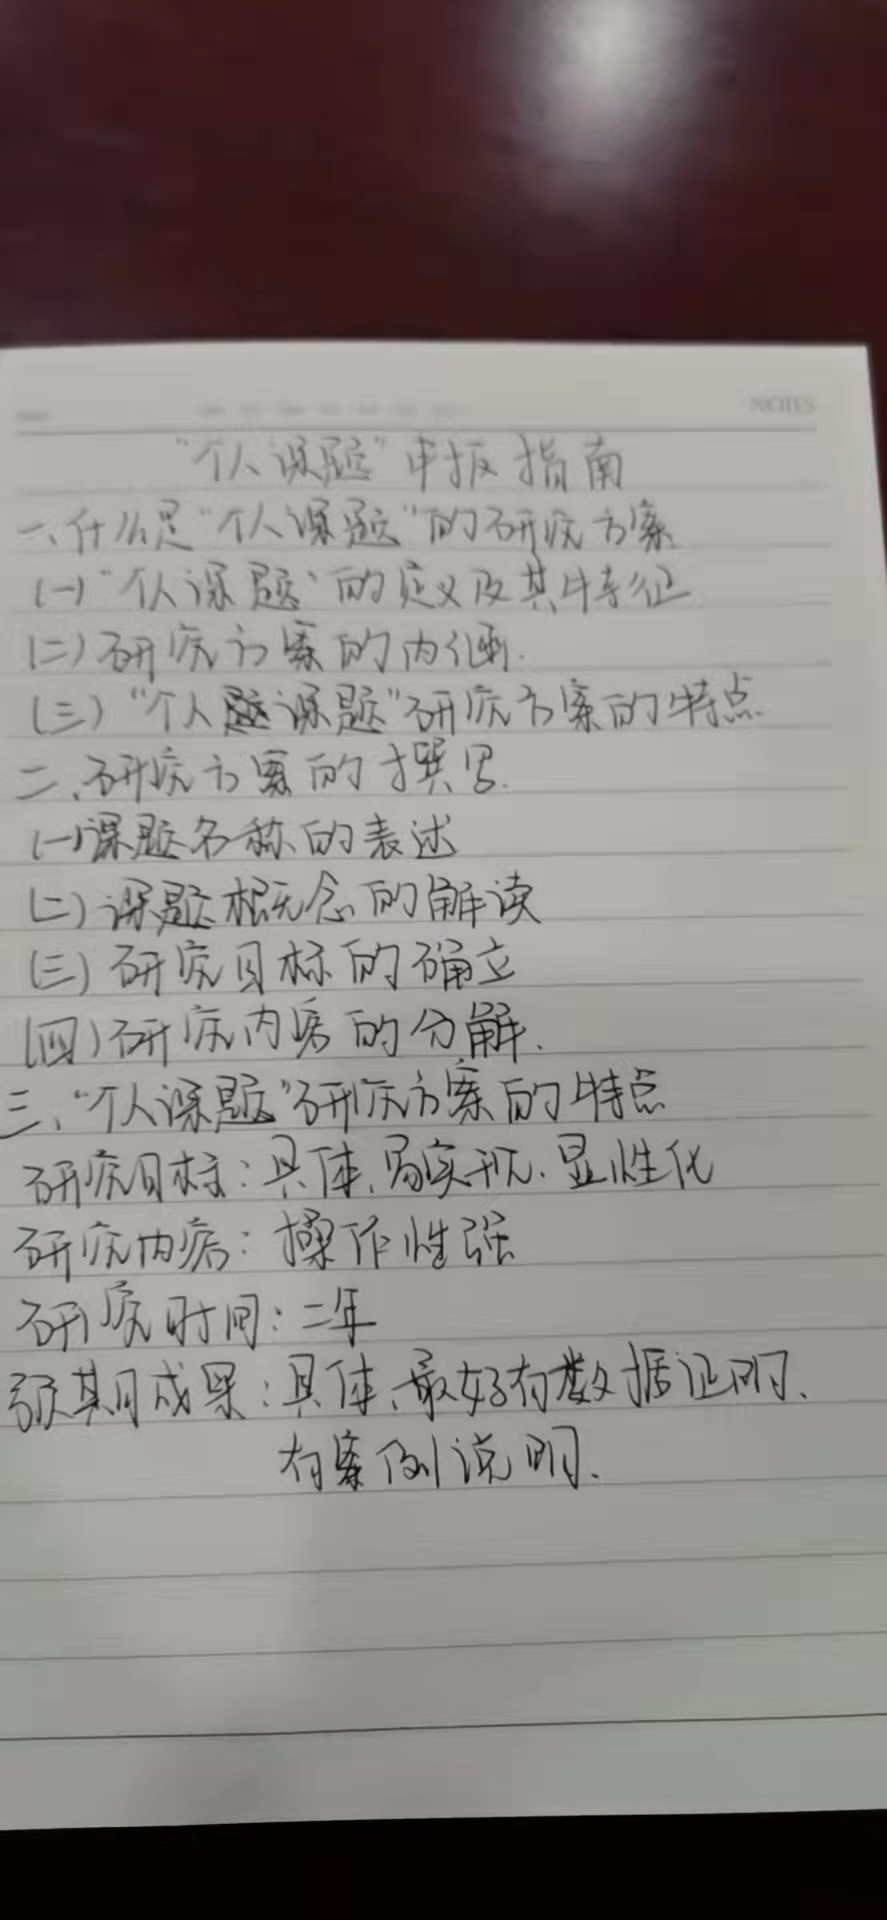 NOTES
“个人课题”申报指南
一、什么是“个人课题”的研究方案
(一)“个人课题”的定义及其特征
(二)研究方案的内涵.
(三)“个人课题”研究方案的特点
二、研究方案的撰写.
(一)课题名称的表述
(二)课题概念的解读
(三)研究目标的确立
(四)研究内容的分解.
三、“个人课题”研究方案的特点
研究目标：具体、易实现、显性化
研究内容：操作性强
研究时间：二年
预期成果：具体、最好有数据证明、
有案例说明.